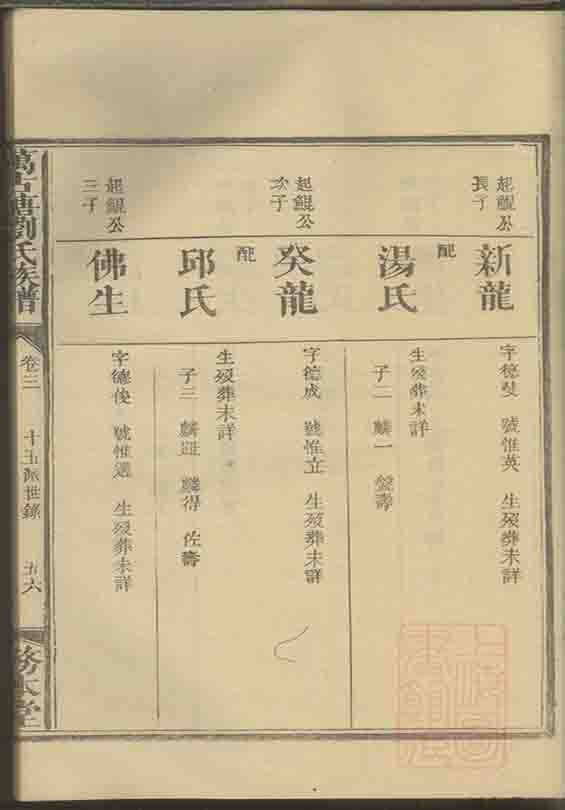 起鯤公
長子
新龍
字德斐 號惟英 生歿葬未詳
配
湯氏
生歿葬未詳
子二 麟一 盤壽
起鯤公
次子
癸龍
字德成 號惟立 生歿葬未詳
配
邱氏
生歿葬未詳
子三 麟 麟得 佐壽
起鯤公
三子
佛生
字德俊 號惟選 生歿葬未詳
萬石塘劉氏族譜
卷三
十五派世錄
五六
務本堂